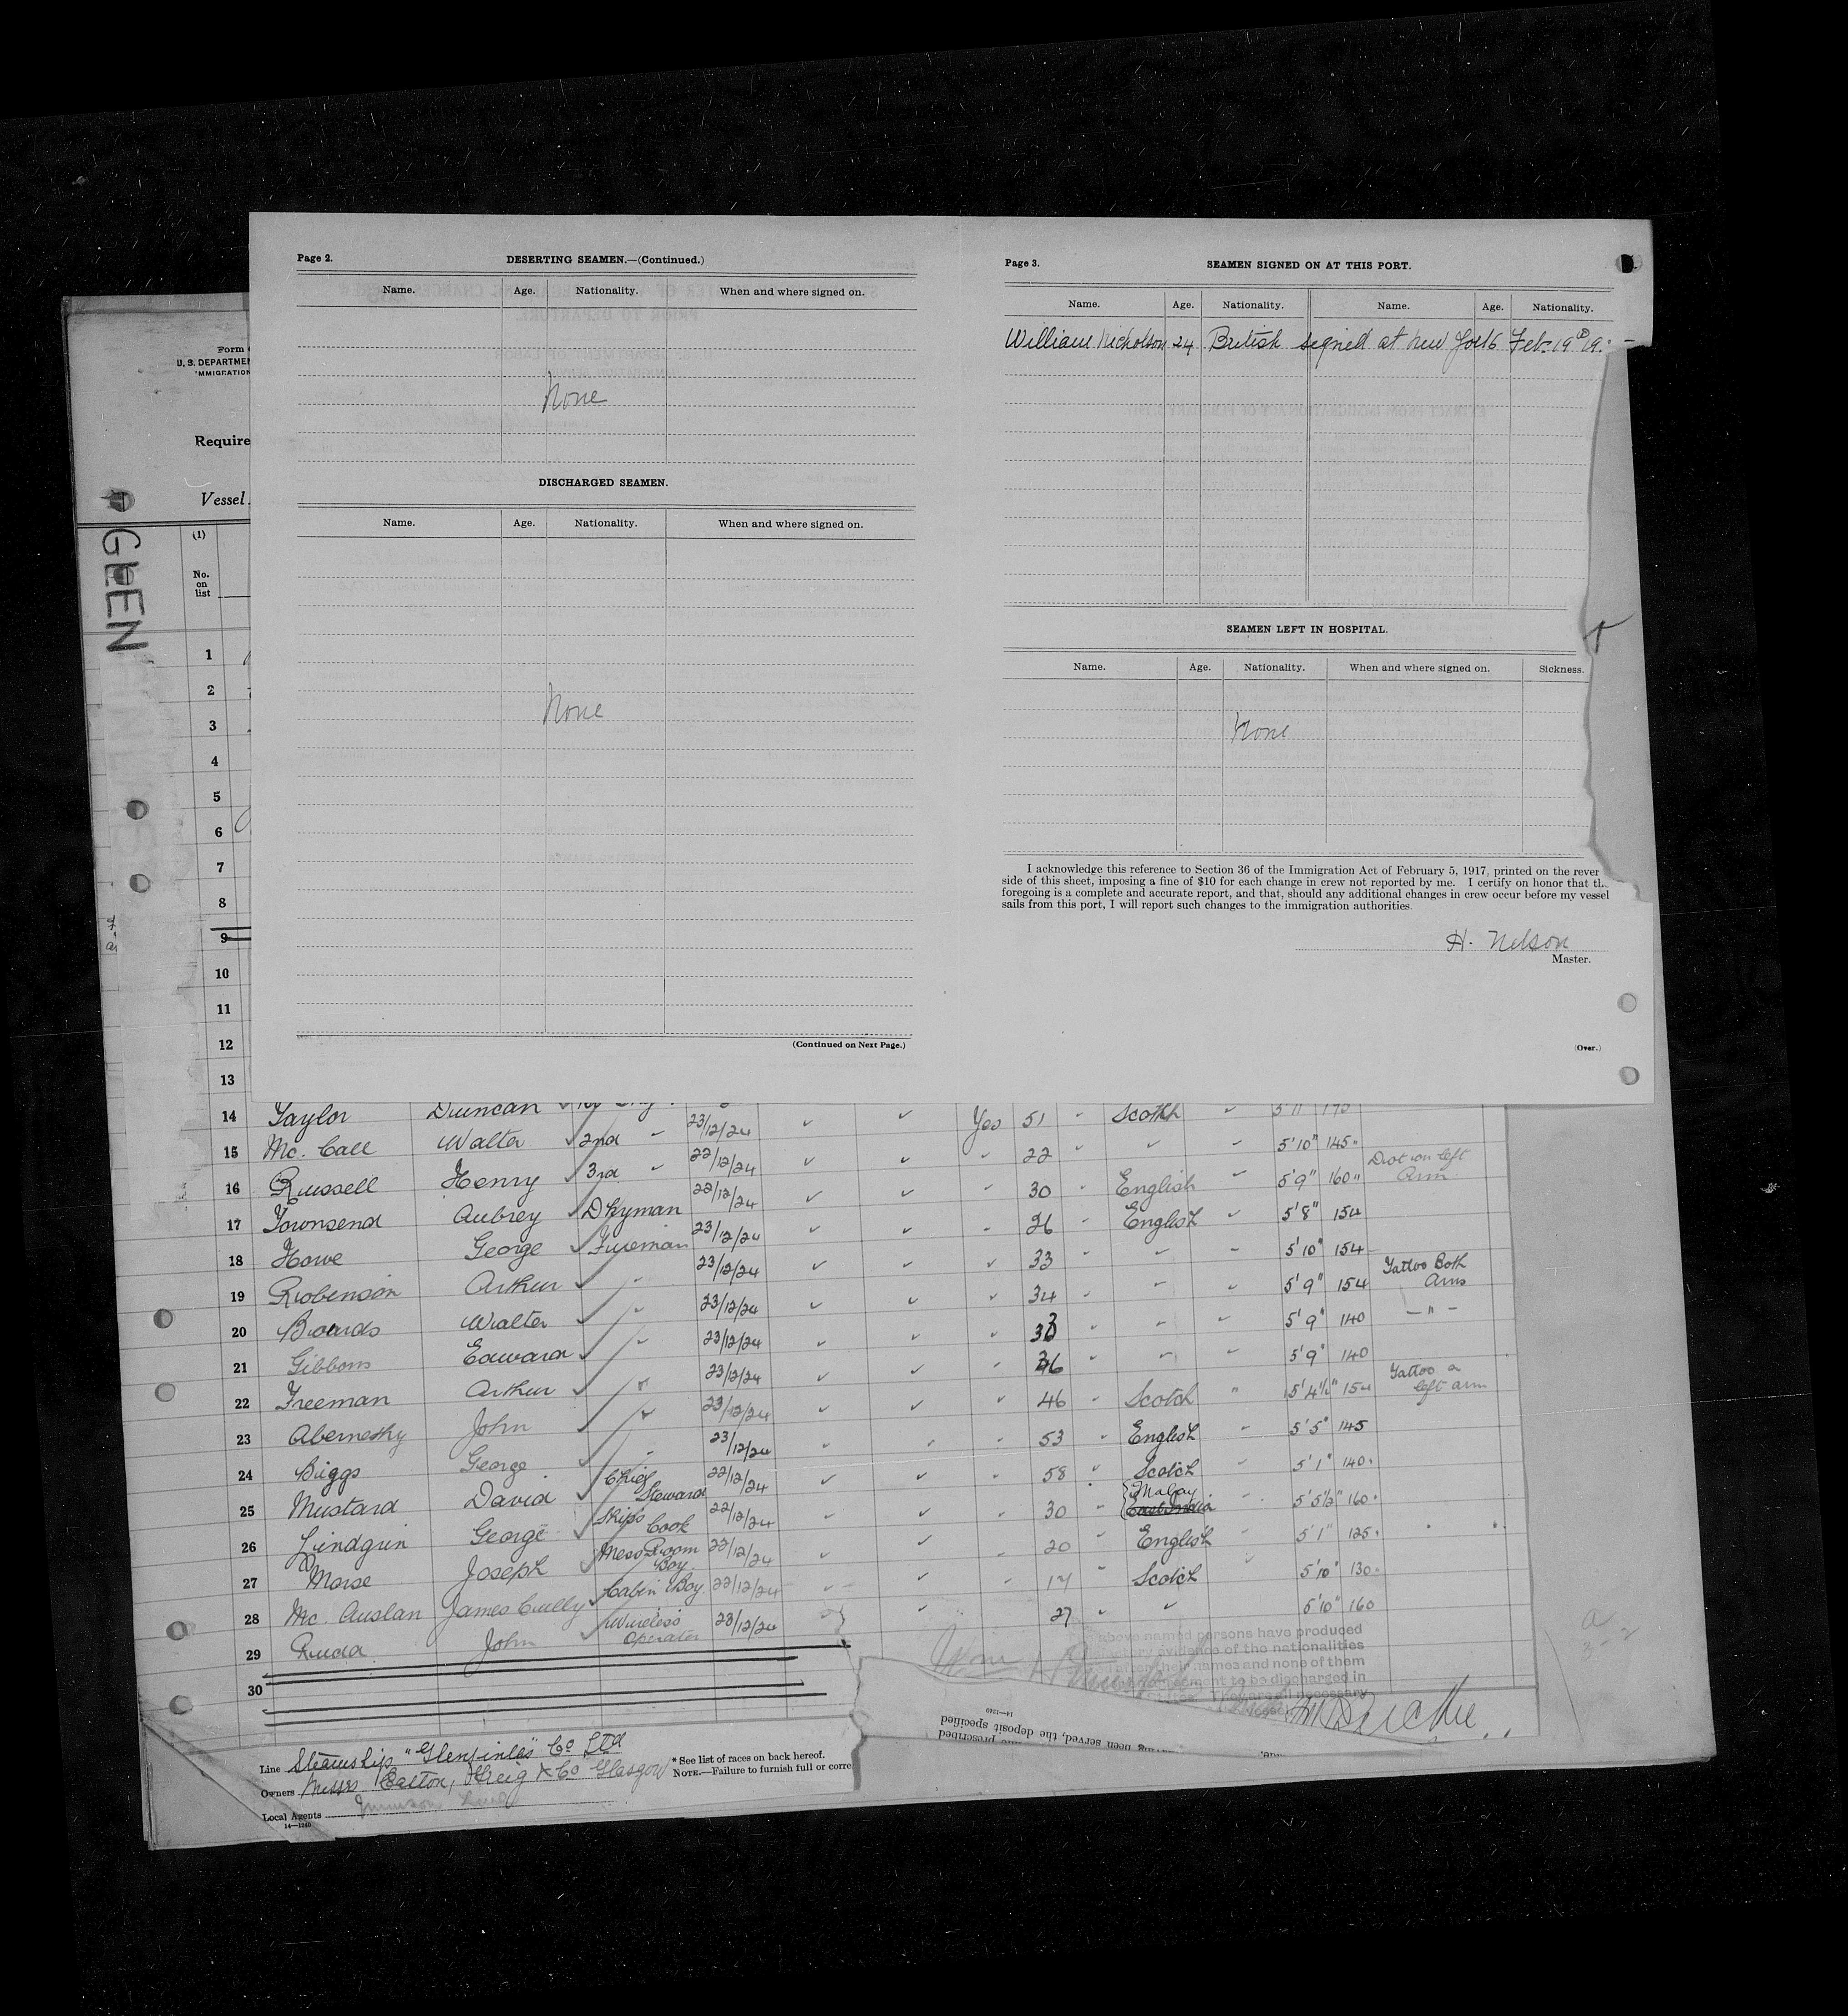 Page 2.
DESERTING SEAMEN.—(Continued.)
Name. Age. Nationality. When and where signed on.
None
DISCHARGED SEAMEN.
Name. Age. Nationality. When and where signed on.
None
(Continued on Next Page.)
Page 3.
SEAMEN SIGNED ON AT THIS PORT.
Name. Age. Nationality. Name. Age. Nationality.
William Nicholson 24 British signed at New York Feb. 19th 19
SEAMEN LEFT IN HOSPITAL.
Name. Age. Nationality. When and where signed on. Sickness.
None
I acknowledge this reference to Section 36 of the Immigration Act of February 5, 1917, printed on the rever
side of this sheet, imposing a fine of $10 for each change in crew not reported by me. I certify on honor that th
foregoing is a complete and accurate report, and that, should any additional changes in crew occur before my vessel
sails from this port, I will report such changes to the immigration authorities.
H. Nelson
Master.
(Over.)
Form
U. S. DEPARTMEN
IMMIGRATION
Require
Vessel
GLEN
(1)
No.
on
list
1
2
3
4
5
6
7
8
9
10
11
12
13
14 Taylor Duncan Yes 51 Scotch 5'11 170
15 Mc. Call Walter 2nd 23/12/24 22 5'10" 145
16 Russell Henry 3rd 22/12/24 30 English 5'9" 160 left Arm
17 Townsend Aubrey Dkyman 22/12/24 26 English 5'8" 154
18 Howe George Fireman 23/12/24 33 5'10" 154
19 Robenson Arthur 23/12/24 34 5'9" 154 Tattoo Both Arms
20 Walter 23/12/24 33 5'9" 140 — " —
21 Gibbons Edward 23/12/24 36 5'9" 140
22 Freeman Arthur 23/12/24 46 Scotch 5'4½" 154 Tattoo a left arm
23 Abernethy John 23/12/24 53 English 5'5" 145
24 Biggs George 23/12/24 58 Scotch 5'1" 140
25 Mustard David Chief Steward 22/12/24 30 Malay 5'5½" 160
26 Lindgrin George Ships Cook 22/12/24 20 English 5'1" 125
27 Morse Joseph Mess Room Boy 22/12/24 17 Scotch 5'10" 130
28 Mc. Auslan James Cully Cabin Boy 22/12/24 27 5'10" 160
29 Rudd John Wireless Operator 23/12/24
30
above named persons have produced
evidence of the nationalities
names and none of them
to be discharged in
necessary
14—1240
been served, the deposit specified
prescribed
Line Steamship "Glenfinlas" Co Ltd
Owners Messrs Greig & Co Glasgow
Local Agents
14—1240
* See list of races on back hereof.
NOTE.—Failure to furnish full or corre